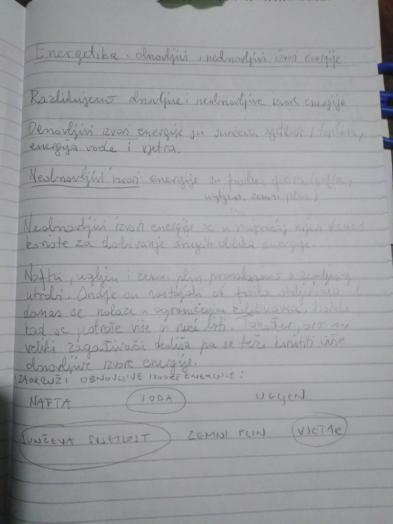 Energetika - obnovljivi i neobnovljivi izvori energije
Razlikujemo obnovljive i neobnovljive izvore energije.
Obnovljivi izvori energije su sunčeva svjetlost i toplina,
energija vode i vjetra.
Neobnovljivi izvori energije su fosilna goriva (nafta,
ugljen, zemni plin)
Neobnovljivi izvori energije se u najvećoj mjeri danas
koriste za dobivanje drugih oblika energije.
Nafta, ugljen i zemni plin pronalazimo u Zemljinoj
utrobi. Ondje su nastajali od
danas se nalaze u ograničenim količinama,
kad se potroše više ih neće biti. Također, oni su
veliki zagađivači okoliša pa se teži koristiti
obnovljive izvore energije.
ZAOKRUŽI OBNOVLJIVE IZVORE ENERGIJE:
NAFTA VODA UGLJEN
SUNČEVA SVJETLOST ZEMNI PLIN VJETAR